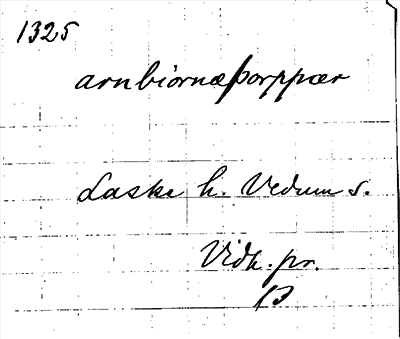 1325
arnbiornæþorppær
Laske h. Vedum s.
Vidh. pr.
B